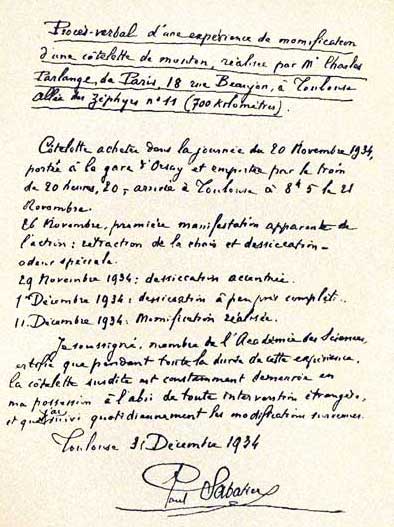 Procès-verbal d'une expérience de momification
d'une côtelotte de mouton, réalisée par Mr Charles
Parlange, de Paris, 18 rue Beaujon, à Toulouse
allée des Zéphyrs n° 11 (700 kilomètres).
Côtelotte achetée dans la journée du 20 Novembre 1934,
portée à la gare d'Orsay et emportée par le train
de 20 heures, 20, arrivée à Toulouse à 8h 5 le 21
Novembre.
26 Novembre, première manifestation apparente de
l'action: rétraction de la chair et dessiccation-
odeur spéciale.
29 Novembre 1934: dessiccation accentuée.
1er Décembre 1934: dessiccation à peu près complète.
11. Décembre 1934: Momification réalisée.
Je soussigné, membre de l'Académie des Sciences,
certifie que pendant toute la durée de cette expérience,
la côtelotte susdite est constamment demeurée en
ma possession à l'abri de toute intervention étrangère,
et que j'ai suivi quotidiennement les modifications survenues.
Toulouse Décembre 1934
Paul Sabatier